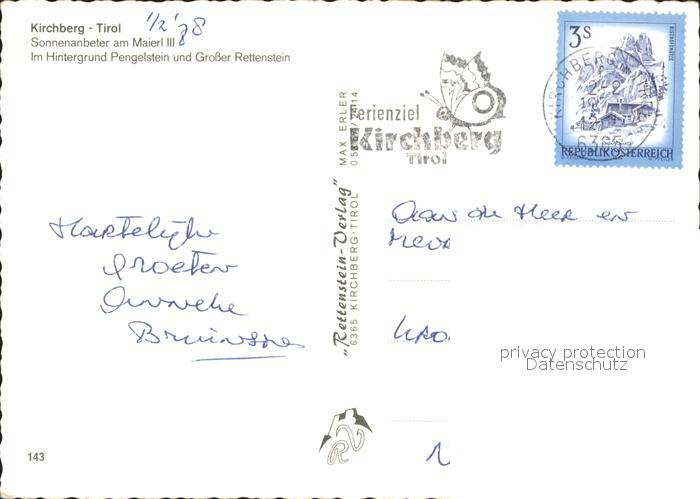 Kirchberg - Tirol
1/2 '78
Sonnenanbeter am Maierl III
Im Hintergrund Pengelstein und Großer Rettenstein
3 S
REPUBLIK ÖSTERREICH
KIRCHBERG
6365
Ferienziel
Kirchberg
Tirol
MAX ERLER
„Rettenstein-Verlag"
6365 KIRCHBERG-TIROL
Aan de Heer en
Mevr
Hartelijke
groeten
Anneke
privacy protection
Datenschutz
143